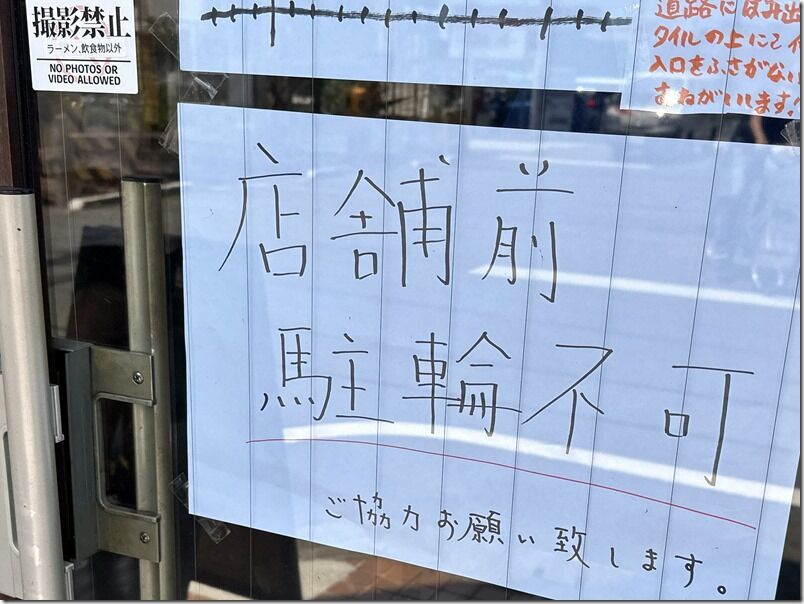 撮影禁止
ラーメン、飲食物以外
NO PHOTOS OR
VIDEO ALLOWED
道路にはみ出
タイルの上に
入口をふさがない
おねがいします
店舗前
駐輪不可
ご協力お願い致します。